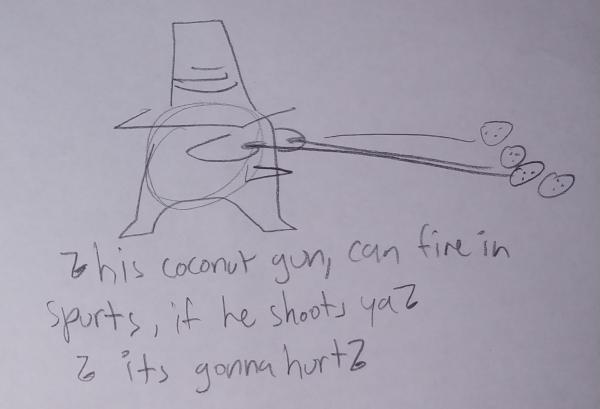 his coconut gun, can fire in
spurts, if he shoots ya
its gonna hurt